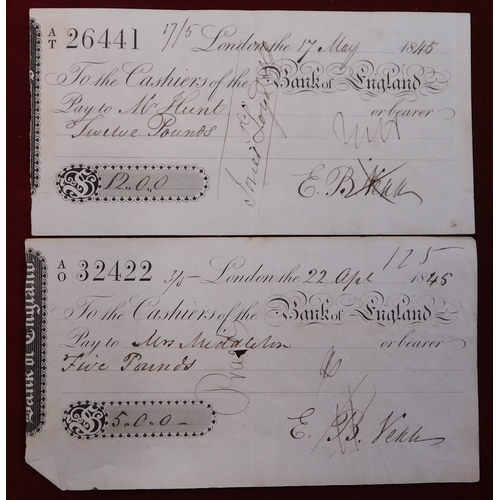 A/T 26441 17/5 London the 17 May 1845
To the Cashiers of the Bank of England
Pay to Mr Hunt or bearer
Twelve Pounds
£ 12..0..0 E. B. Venn
A/O 32422 3/5 – London the 22 Apl 1845
125
To the Cashiers of the Bank of England
Pay to Mrs Middleton or bearer
Five Pounds
£ 5..0..0 – E. B. Venn
Bank of England